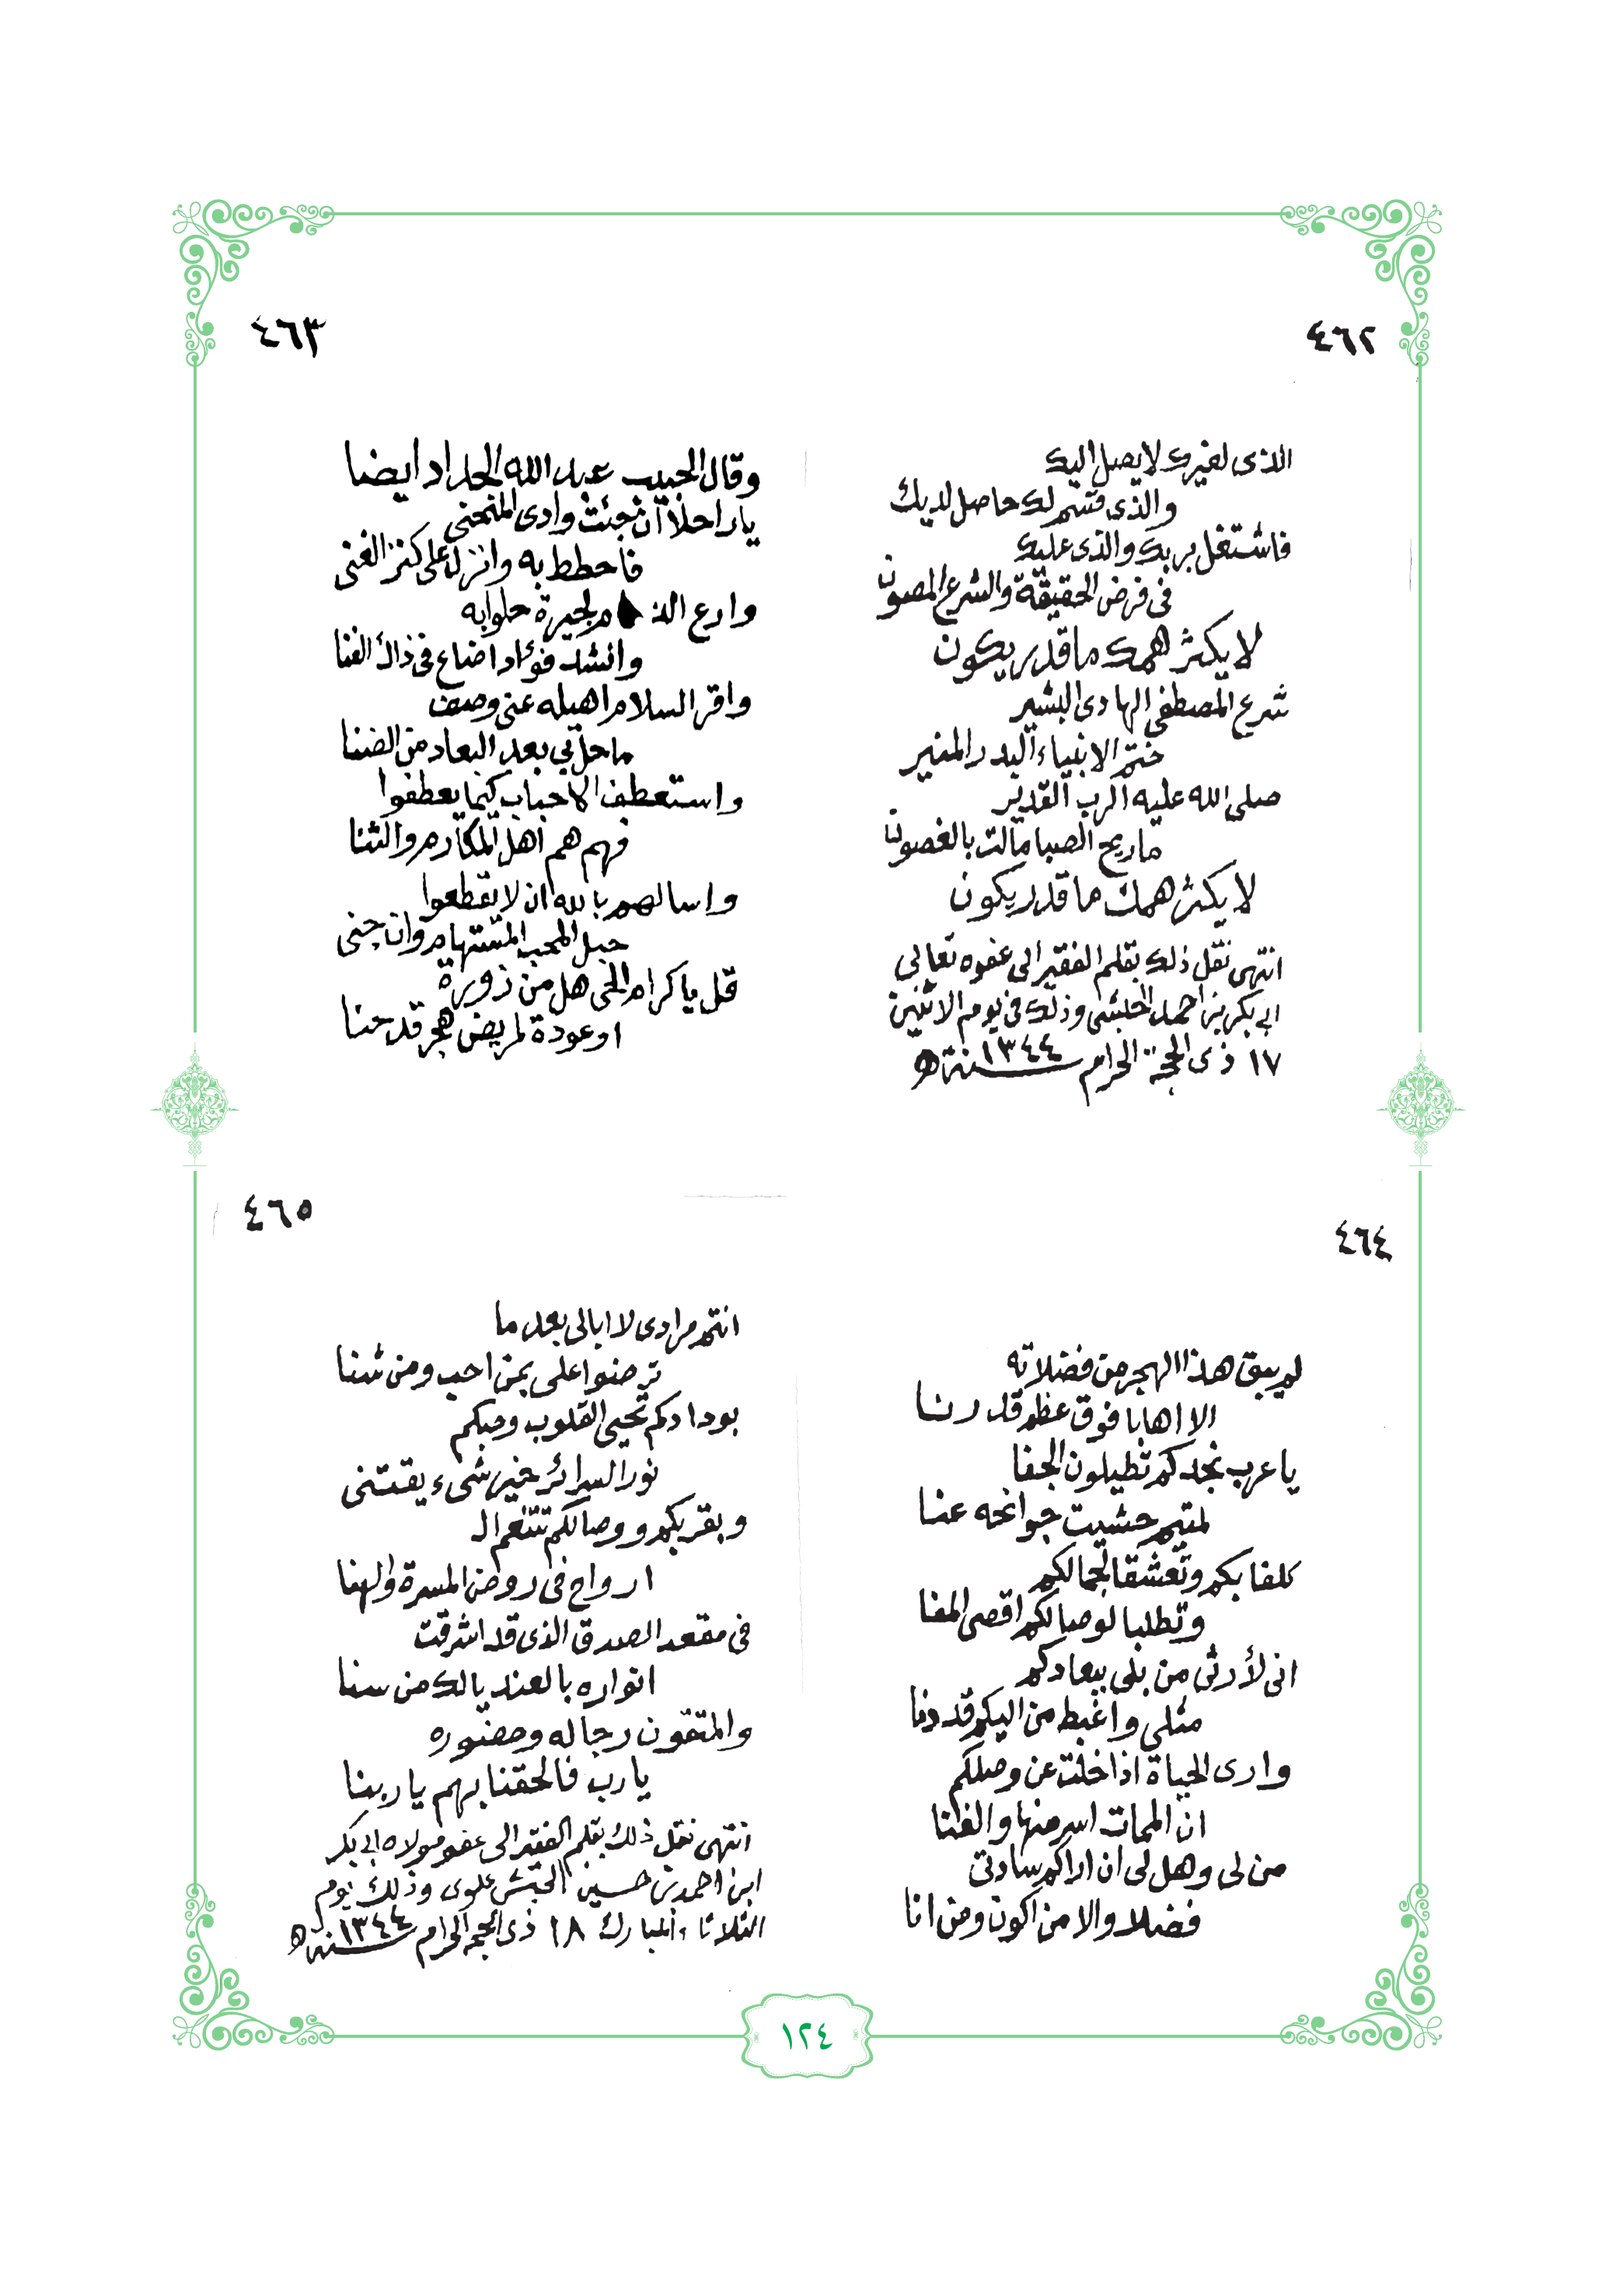 ٤٦٢
الذى لغيرك لا يصل اليك
والذى قسم لك حاصل لديك
فاشتغل بربك والذى عليك
فى فرض الحقيقة والشرع المصون
لا يكثر همك ما قدر يكون
شرع المصطفى الهادى البشير
ختم الانبياء البدر المنير
صلى الله عليه الرب القدير
ما ريح الصبا مالت بالغصون
لا يكثر همك ما قدر يكون
انتهى نقل ذلك بقلم الفقير الى عفوه تعالى
ابى بكر بن احمد الحبشى وذلك فى يوم الاثنين
١٧ ذى الحجة الحرام سنة ١٣٤٤ ه
٤٦٣
وقال الحبيب عبد الله الحداد ايضا
يا راحلا ان جئت وادى المنحنى
فاحطط به وانزل على كنز الغنى
وارع الذمام لجيرة حلوا به
وانشد فوءادا ضاع فى ذاك الفنا
واقر السلام اهيله عنى وصف
ما حل بى بعد البعاد من الضنا
واستعطف الاحباب كيما يعطفوا
فهم هم اهل المكارم والثنا
واسالهم بالله ان لا يقطعوا
حبل المحب المستهام وان جنى
قل يا كرام الحى هل من زورة
او عودة لمريض هجر قد حنا
٤٦٤
لم يبق هذا الهجر من فضلاته
الا اهابا فوق عظم قد رنا
يا عرب نجد كم تطيلون الجفا
لمتيم حشيت جوانحه عنا
كلفا بكم وتعشقا لجمالكم
وتطلبا لوصالكم اقصى المنا
انى لأرثى من بلى ببعادكم
مثلى واغبط من اليكم قد دنا
وارى الحياة اذا خلت عن وصلكم
ان الممات اسر منها والفنا
من لى وهل لى ان اراكم سادتى
فضلا والا من اكون ومن انا
٤٦٥
انتم مرادى لا ابالى بعد ما
ترضوا على بمن احب ومن شنا
بودادكم تحيى القلوب وحبكم
نور السرائر خير شىء يقتنى
وبقربكم ووصالكم تتنعم ال
ارواح فى روض المسرة والهنا
فى مقعد الصدق الذى قد اشرقت
انواره بالعند يالك من سنا
والمتقون رجاله وحضوره
يا رب فالحقنا بهم يا ربنا
انتهى نقل ذلك بقلم الفقير الى عفو مولاه ابى بكر
ابن احمد بن حسين الحبشى علوى وذلك يوم
الثلاثاء المبارك ١٨ ذى الحجة الحرام سنة ١٣٤٤ ه
١٢٤